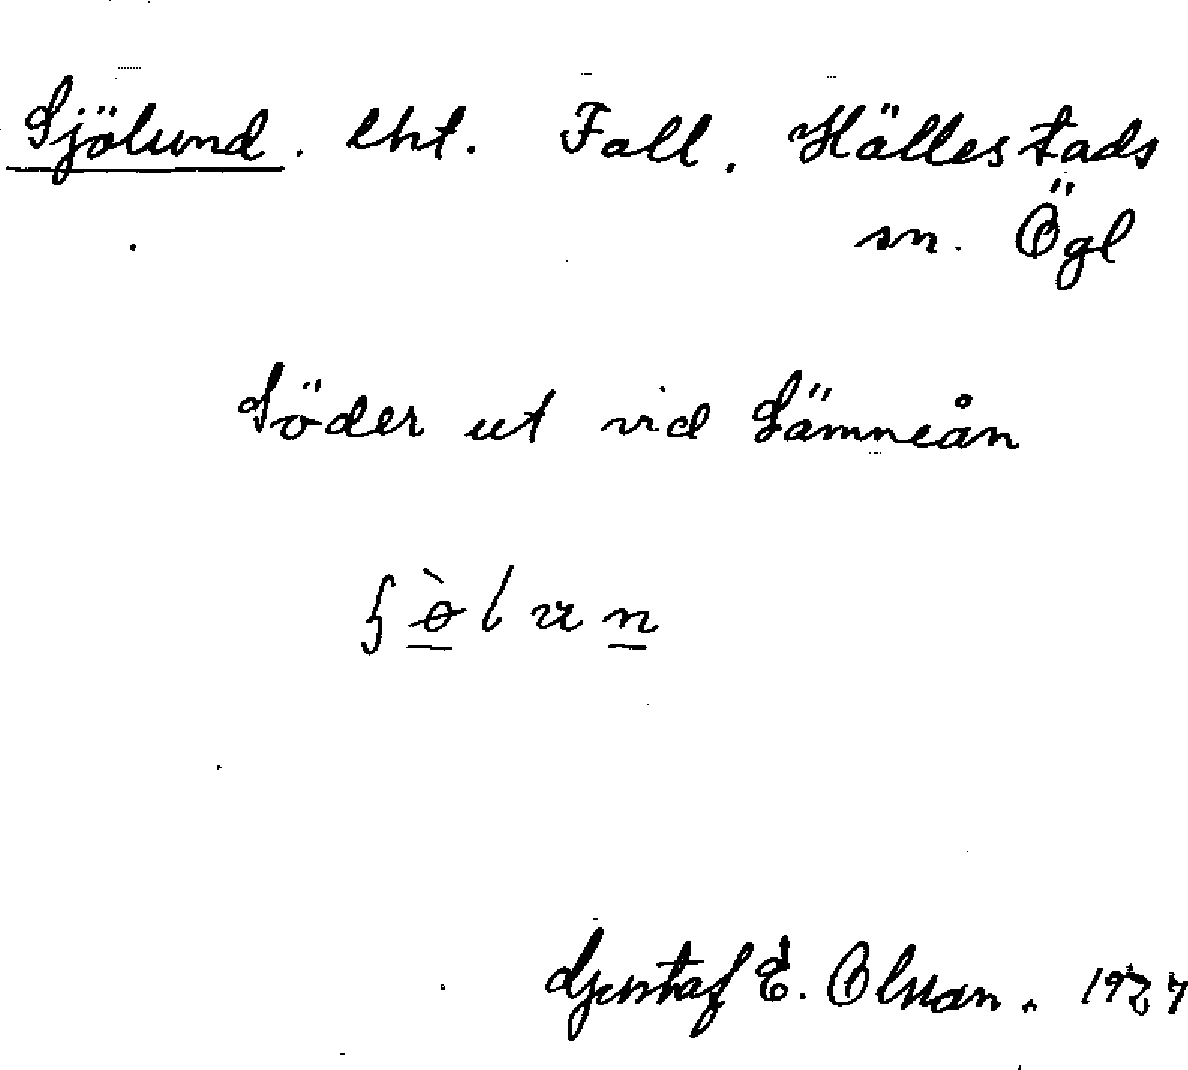 Sjölund. lht. Fall. Hällestads
sn. Ögl
Söder ut vid Sämneån
Gustaf E. Olsson. 1927